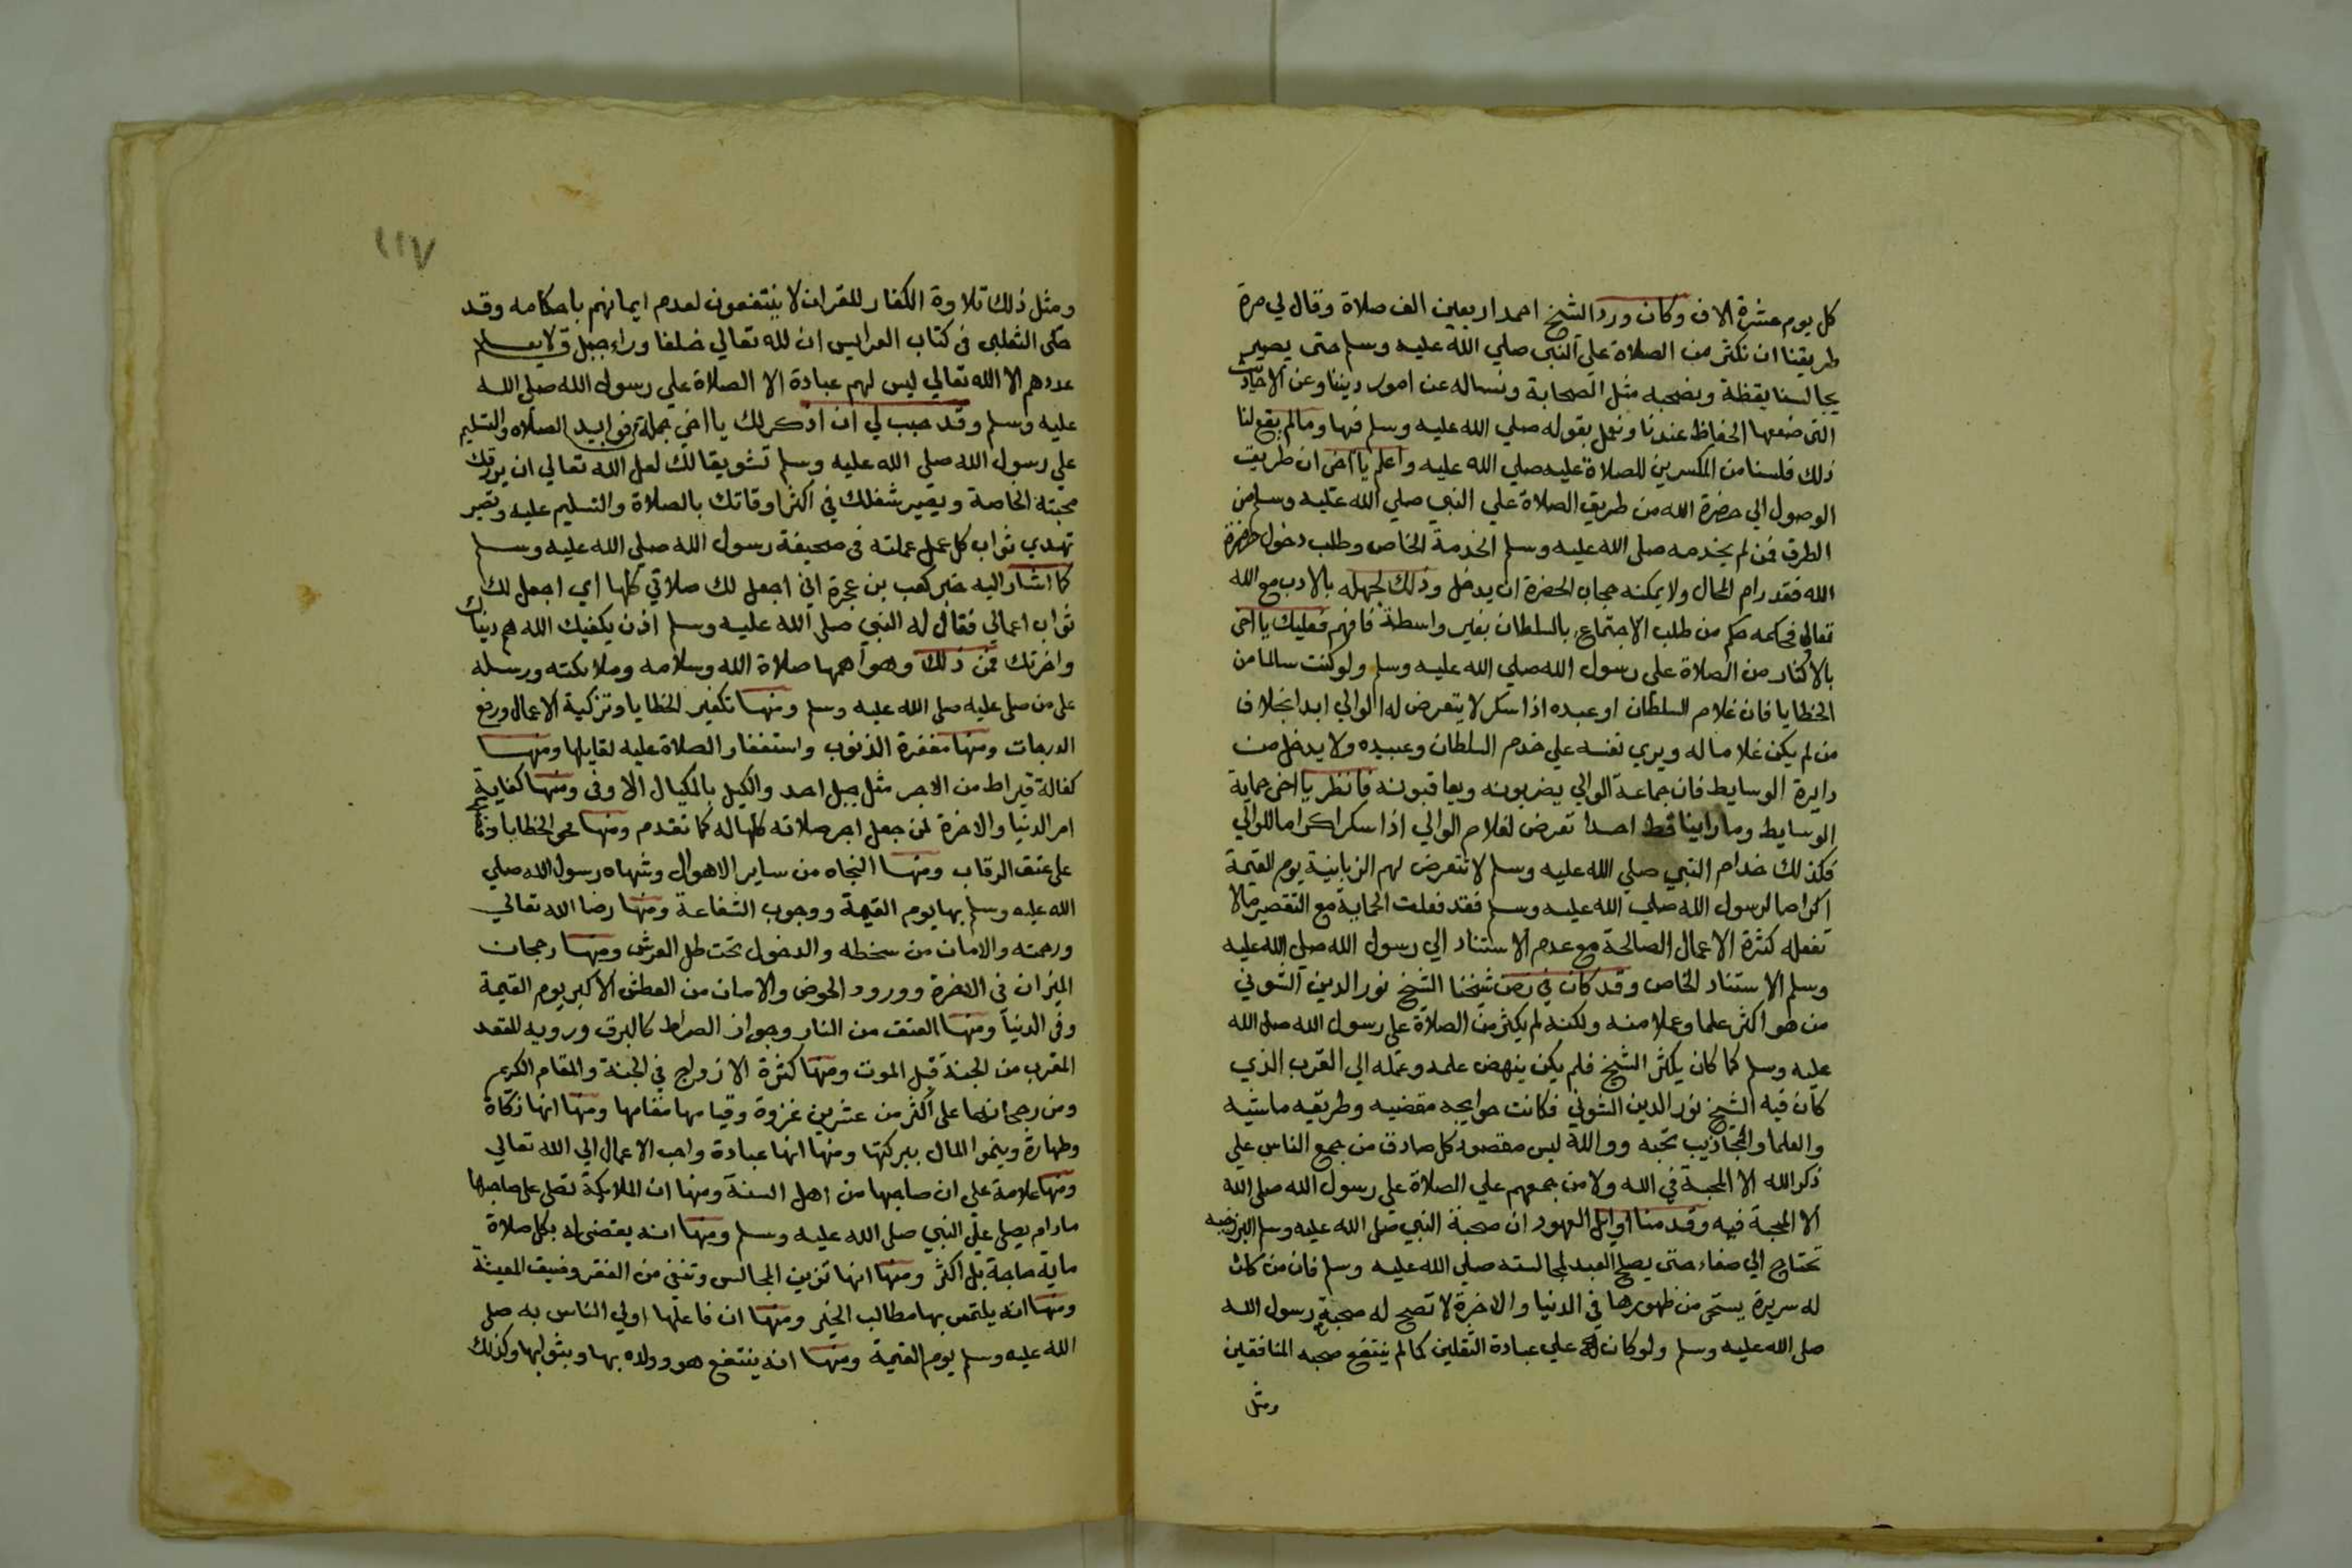 كل يوم عشرة الاف وكان ورد الشيخ احمد اربعين الف صلاة وقال لي مرة
طريقنا ان نكثر من الصلاة علي النبي صلي الله عليه وسلم حتى يصير
يجالسنا يقظة ونصحبه مثل الصحابة ونساله عن امور ديننا وعن الاحاديث
التي ضعفها الحفاظ عندنا ونعمل بقوله صلي الله عليه وسلم فيها وما لم يقع لنا
ذلك فلسنا من المكثرين للصلاة عليه صلي الله عليه واعلم يا اخى ان طريق
الوصول الي حضرة الله من طريق الصلاة علي النبي صلي الله عليه وسلم من
الطرق فمن لم يخدمه صلى الله عليه وسلم الخدمة الخاص وطلب دخول حضرة
الله فقد رام المحال ولا يمكنه حجاب الحضرة ان يدخل وذلك لجهله بالادب مع الله
تعالى فحكمه حكم من طلب الاجتماع بالسلطان بغير واسطة فافهم فعليك يا اخى
بالاكثار من الصلاة على رسول الله صلي الله عليه وسلم ولو كنت سالما من
الخطايا فان غلام السلطان او عبده اذا سكر لا يتعرض له الوالي ابدا بخلاف
من لم يكن غلاما له ويري نفسه علي خدم السلطان وعبيده ولا يدخل من
دايرة الوسايط فان جماعة الوالي يضربونه ويعاقبونه فانظر يا اخى حماية
الوسايط وما راينا قط احدا تعرض لغلام الوالي اذا سكر اكراما للوالي
فكذلك خدام النبي صلي الله عليه وسلم لا تتعرض لهم الزبانية يوم القيمة
اكراما لرسول الله صلي الله عليه وسلم فقد فعلت الحماية مع التقصير مالا
تفعله كثرة الاعمال الصالحة مع عدم الاستناد الي رسول الله صلي الله عليه
وسلم الاستناد الخاص وقد كان في زمن شيخنا الشيخ نور الدين الشوني
من هو اكثر علما وعملا منه ولكنه لم يكثر من الصلاة علي رسول الله صلى الله
عليه وسلم كما كان يكثر الشيخ فلم يكن ينهض علمه وعمله الي القرب الذي
كان فيه الشيخ نور الدين الشوني فكانت حوايجه مقضيه وطريقه ماشيه
والعلما والمجاذيب تحبه ووالله ليس مقصود كل صادق من جمع الناس علي
ذكر الله الا المحبة في الله ولا من جمعهم علي الصلاة علي رسول الله صلى الله
الا المحبة فيه وقدمنا اوايل العهود ان صحبة النبي صلى الله عليه وسلم البرزخيه
تحتاج الي صفاء حتى يصلح العبد لمجالسته صلي الله عليه وسلم فان من كانت
له سريرة يستحى من ظهورها في الدنيا والاخرة لا تصح له صحبة رسول الله
صلى الله عليه وسلم ولو كان علي عبادة الثقلين كما لم ينتفع صحبه المنافقين
ومثل
١١٧
ومثل ذلك تلاوة الكفار للقران لا ينتفعون لعدم ايمانهم باحكامه وقد
حكى الثعلبى فى كتاب العرايس ان لله تعالي خلقا وراء جبل ق لا يعلم
عددهم الا الله تعالي ليس لهم عبادة الا الصلاة علي رسول الله صلى الله
عليه وسلم وقد حبب لي ان اذكر لك يا اخي جملة من فوايد الصلاه والتسليم
علي رسول الله صلى الله عليه وسلم تشويقا لك لعل الله تعالي ان يرزقك
محبته الخاصة ويصير شغلك في اكثر اوقاتك بالصلاة والتسليم عليه وتصير
تهدي ثواب كل عمل عملته فى صحيفة رسول الله صلي الله عليه وسلم
كما اشار اليه خبر كعب بن عجرة اني اجعل لك صلاتي كلها اي اجعل لك
ثواب اعمالي فقال له النبي صلى الله عليه وسلم اذن يكفيك الله هم دنياك
واخرتك فمن ذلك وهو اهمها صلاة الله وسلامه وملائكته ورسله
على من صلى عليه صلى الله عليه وسلم ومنها تكفير الخطايا وتزكية الاعمال ورفع
الدرجات ومنها مغفرة الذنوب واستغفار الصلاة عليه لقايلها ومنها
كفالة قيراط من الاجر مثل جبل احد والكيل بالمكيال الاوفى ومنها كفاية
امر الدنيا والاخرة لمن جعل اجر صلاته كلها له كما تقدم ومنها محو الخطايا
على عتق الرقاب ومنها النجاه من ساير الاهوال وشهاه رسول الله صلي
الله عليه وسلم بها يوم القيمة ووجوب الشفاعة ومنها رضا الله تعالي
ورحمته والامان من سخطه والدخول تحت ظل العرش ومنها رجحان
الميزان في الاخرة وورود الحوض والامان من العطش الاكبر يوم القيمة
وفى الدنيا ومنها العتق من النار وجواز الصراط كالبرق ورويه المقعد
المقرب من الجنة قبل الموت ومنها كثرة الازواج في الجنة والمقام الكريم
ومن رجحانها على اكثر من عشرين غزوة وقيامها مقامها ومنها انها زكاة
وطهارة وينموا المال ببركتها ومنها انها عبادة واحب الاعمال الي الله تعالي
ومنها علامة علي ان صاحبها من اهل السنة ومنها ان الملايكة تصلى على صاحبها
مادام يصلي علي النبي صلى الله عليه وسلم ومنها انه يقضى له بكل صلاة
ماية حاجة بل اكثر ومنها انها تزين المجالس وتنفى من الفقر وضيق المعيشة
ومنها انه يلتمس بها مطالب الخير ومنها ان فاعلها اولي الناس به صلى
الله عليه وسلم يوم القيمة ومنها انه ينتفع هو وولده بها وبثوابها وكذلك